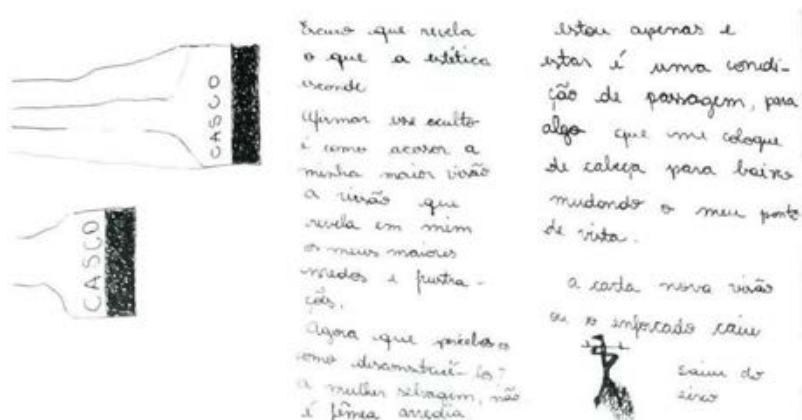 CASCO
CASCO
Escuro que revela
o que a estética
esconde
Afirmar esse oculto
é como acasor a
minha maior visão
a visão que
revela em mim
os meus maiores
medos e frustra-
ções.
Agora que percebo os
como desconstruí-los?
a mulher selvagem, não
é fêmea arredia
estou apenas e
estar é uma condi-
ção de passagem, para
algo que me coloque
de cabeça para baixo
mudando o meu ponto
de vista.
a carta nova visão
ou o enforcado caiu
saiu do
eixo